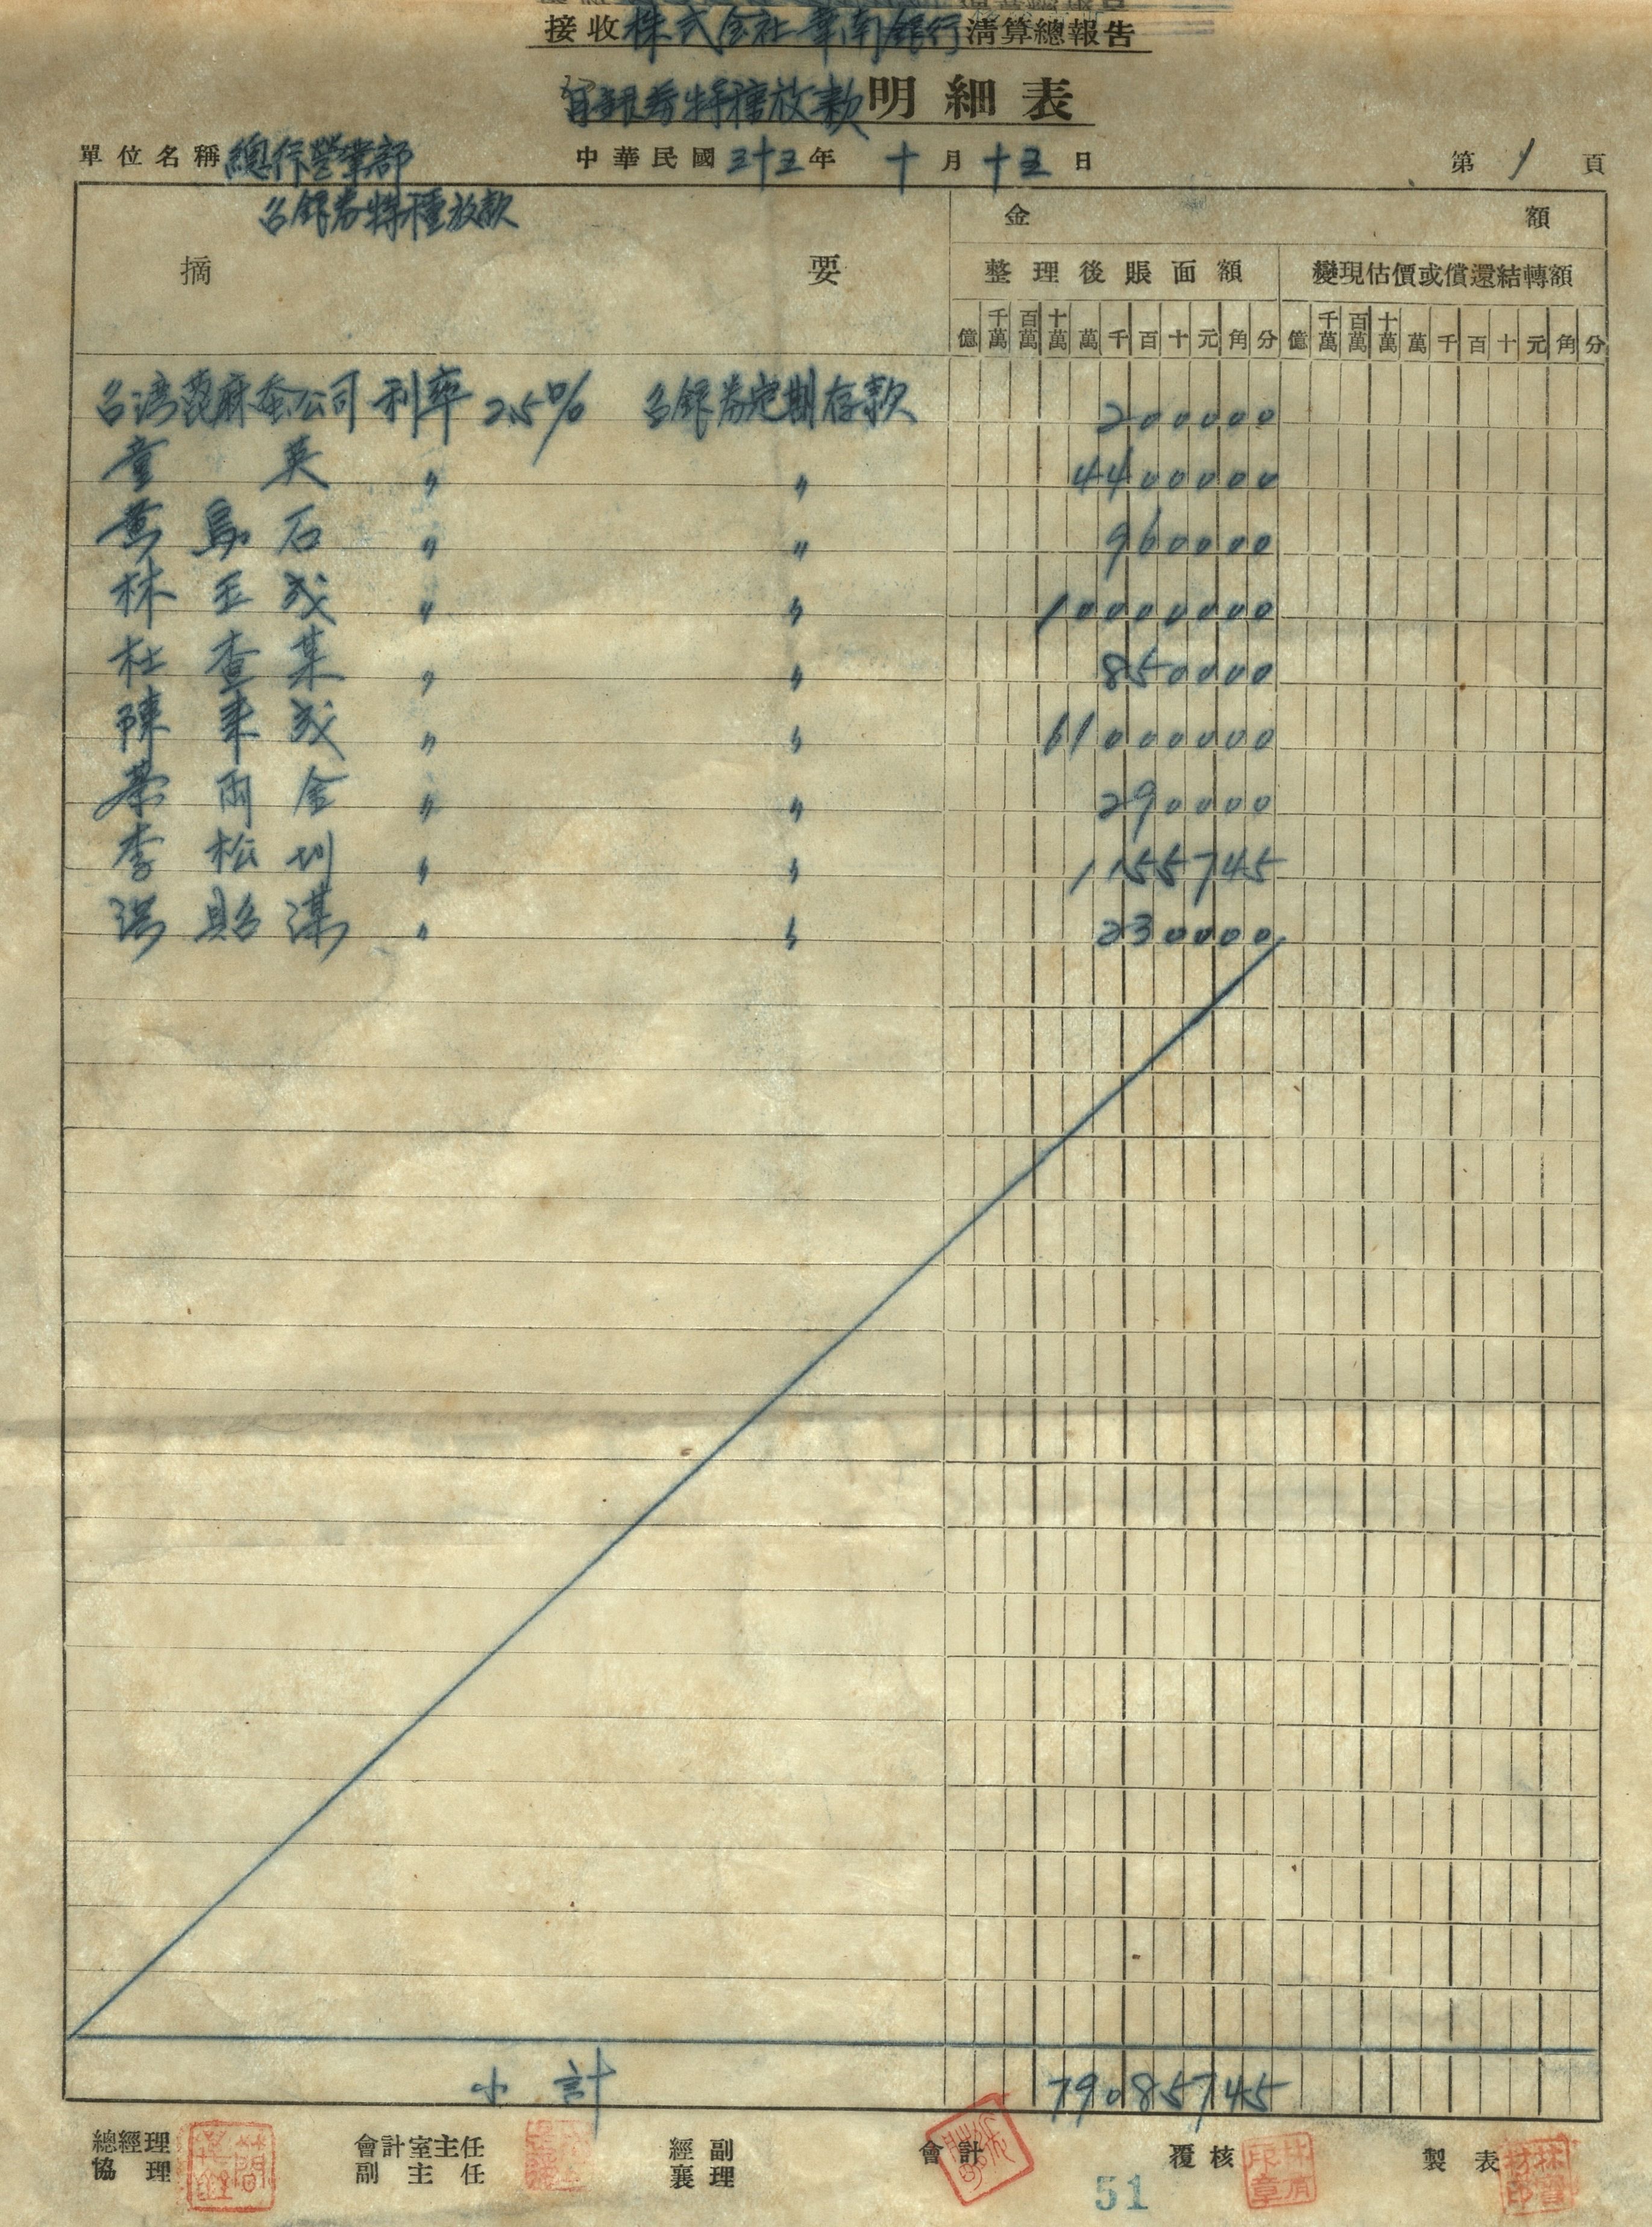 接收株式会社華南銀行清算總報告
台銀券特種放款明細表
單位名稱 總行營業部 中華民國三十五年 十月十五日 第1頁
台銀券特種放款
金額
摘要
整理後賬面額 變現估價或償還結轉額
億 千萬 百萬 十萬 萬 千 百 十 元 角 分 億 千萬 百萬 十萬 萬 千 百 十 元 角 分
台湾蓖麻蚕公司 利率 2.5% 台銀券定期存款 200000
童 英 〃 〃 4400000
石 〃 〃 960000
林玉成 〃 〃 10000000
杜查某 〃 〃 850000
陳来成 〃 〃 61000000
蔡雨金 〃 〃 290000
李松圳 〃 〃 1155745
謀 〃 〃 230000
小計 79085745
總經理 會計室主任 經副 會計 覆核 製表
協理 副主任 襄理
51